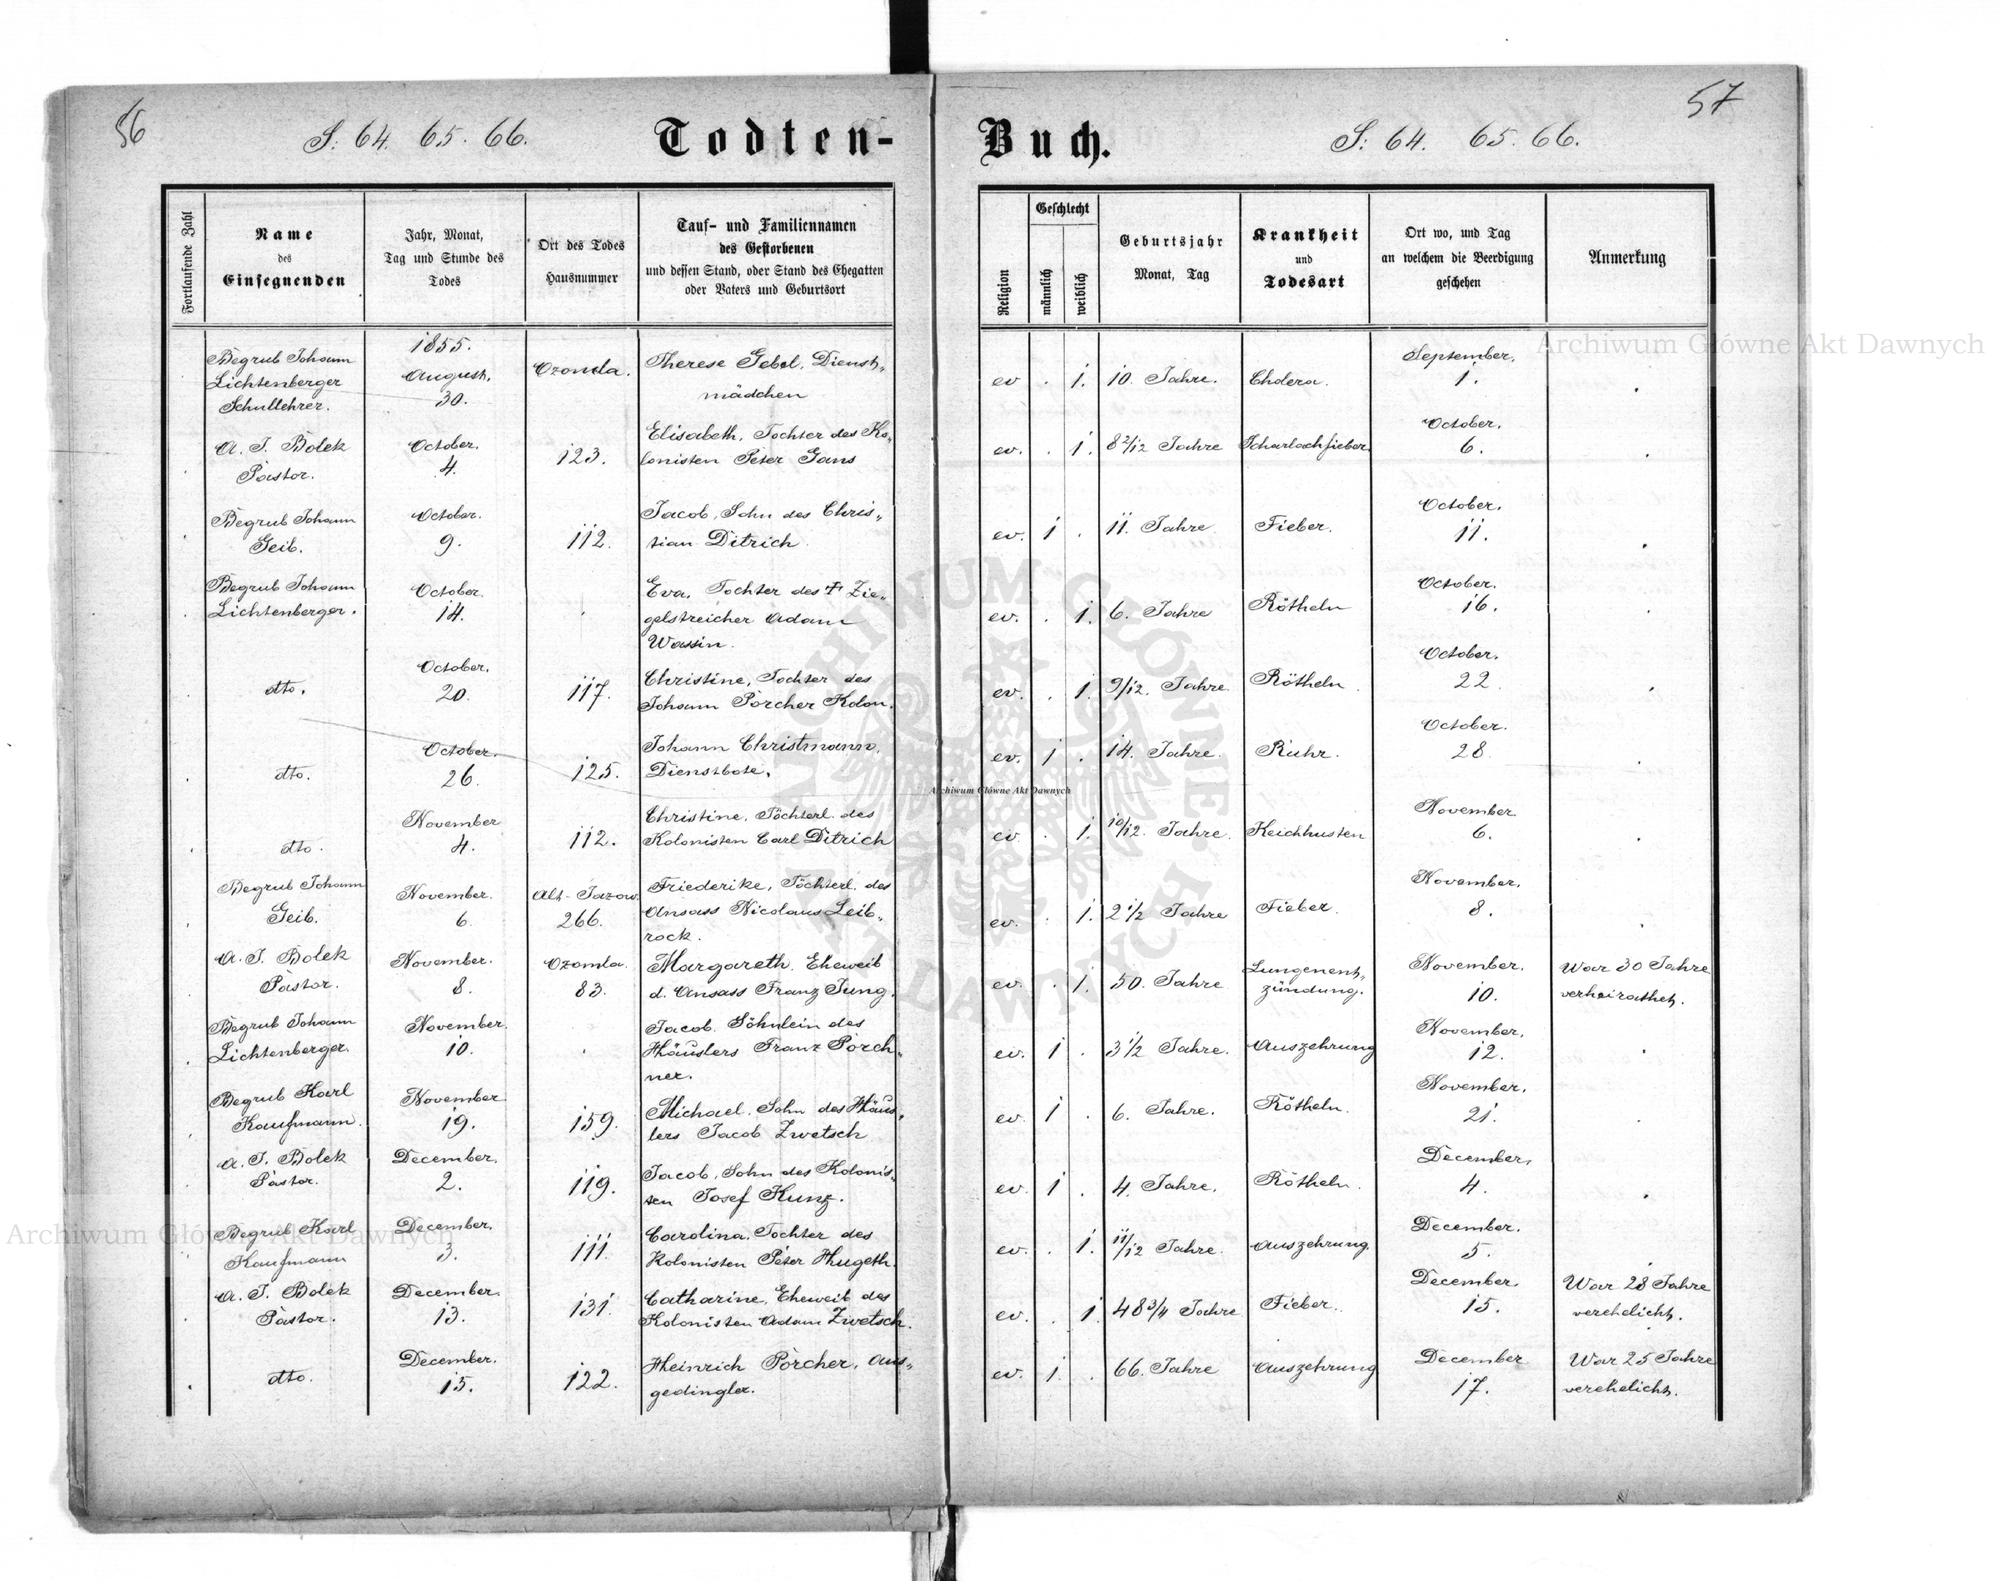 56
S: 64. 65. 66.
Todten-
Fortlaufende Zahl
Name
des
Einsegnenden
Jahr, Monat,
Tag und Stunde des
Todes
Ort des Todes
Hausnummer
Tauf- und Familiennamen
des Gestorbenen
und dessen Stand, oder Stand des Ehegatten
oder Vaters und Geburtsort
Begrub Johann
Lichtenberger
Schullehrer.
1855.
August.
30.
Therese Gebel, Dienst„
mädchen
A. J. Bolek
Pastor.
October.
4.
123.
Elisabeth, Tochter des Ko„
lonisten Peter Gans
Begrub Johann
Geib.
October.
9.
112.
Jacob, Sohn des Chris„
tian Ditrich.
Begrub Johann
Lichtenberger.
October.
14.
Eva, Tochter des † Zie„
gelstreicher Adam
Wassin.
dto.
October.
20.
117.
Christine, Tochter des
Johann Porcher Kolon.
dto.
October.
26.
125.
Johann Christmann,
Dienstbote.
dto.
November
4.
112.
Christine, Töchterl. des
Kolonisten Carl Ditrich
Begrub Johann
Geib.
November.
6.
Alt-Jazow.
266.
Friederike, Töchterl. des
Ansass Nicolaus Leib„
rock.
A. J. Bolek
Pastor.
November.
8.
83.
Margareth, Eheweib
d. Ansass Franz Jung.
Begrub Johann
Lichtenberger.
November.
10.
Jacob, Söhnlein des
Häuslers Franz Porch„
ner.
Begrub Karl
Kaufmann.
November
19.
159.
Michael, Sohn des Häus„
lers Jacob Zwetsch
A. J. Bolek
Pastor.
December.
2.
119.
Jacob, Sohn des Kolonis„
ten Josef Kunz.
Begrub Karl
Kaufmann
December.
3.
111.
Carolina, Tochter des
Kolonisten Peter Hugeth.
A. J. Bolek
Pastor.
December.
13.
131.
Catharine, Eheweib des
Kolonisten Adam Zwetsch.
dto.
December.
15.
122.
Heinrich Porcher, Aus„
gedingler.
57
Buch.
S: 64. 65. 66.
Religion
Geschlecht
männlich
weiblich
Geburtsjahr
Monat, Tag
Krankheit
und
Todesart
Ort wo, und Tag
an welchem die Beerdigung
geschehen
Anmerkung
September.
ev . 1. 10. Jahre. Cholera. 1.
October.
ev. . 1. 8 2/12 Jahre Scharlachfieber. 6.
October.
ev. 1 . 11. Jahre Fieber. 11.
October.
ev. . 1. 6. Jahre Rötheln 16.
October.
ev. . 1. 9/12. Jahre Rötheln. 22.
October.
ev. 1 . 14. Jahre. Ruhr. 28.
November
ev. . 1. 10/12. Jahre. Keichhusten 6.
November.
ev. . 1. 2 1/2 Jahre Fieber. 8.
November.
ev. . 1. 50. Jahre Lungenent„
zündung. 10.
War 30 Jahre
verheirathet.
November.
ev. 1 . 3 1/2 Jahre. Auszehrung 12.
November.
ev. 1 . 6. Jahre. Rötheln. 21.
December.
ev. 1 . 4. Jahre. Rötheln. 4.
December.
ev. . 1. 11/12 Jahre. Auszehrung. 5.
December.
ev. . 1 48 3/4 Jahre Fieber. 15.
War 28 Jahre
verehelicht.
December
ev. 1 . 66. Jahre Auszehrung 17.
War 25 Jahre
verehelicht.
Archiwum Główne Akt Dawnych
Archiwum Główne Akt Dawnych
Archiwum Główne Akt Dawnych
ARCHIWUM GŁÓWNE AKT DAWNYCH